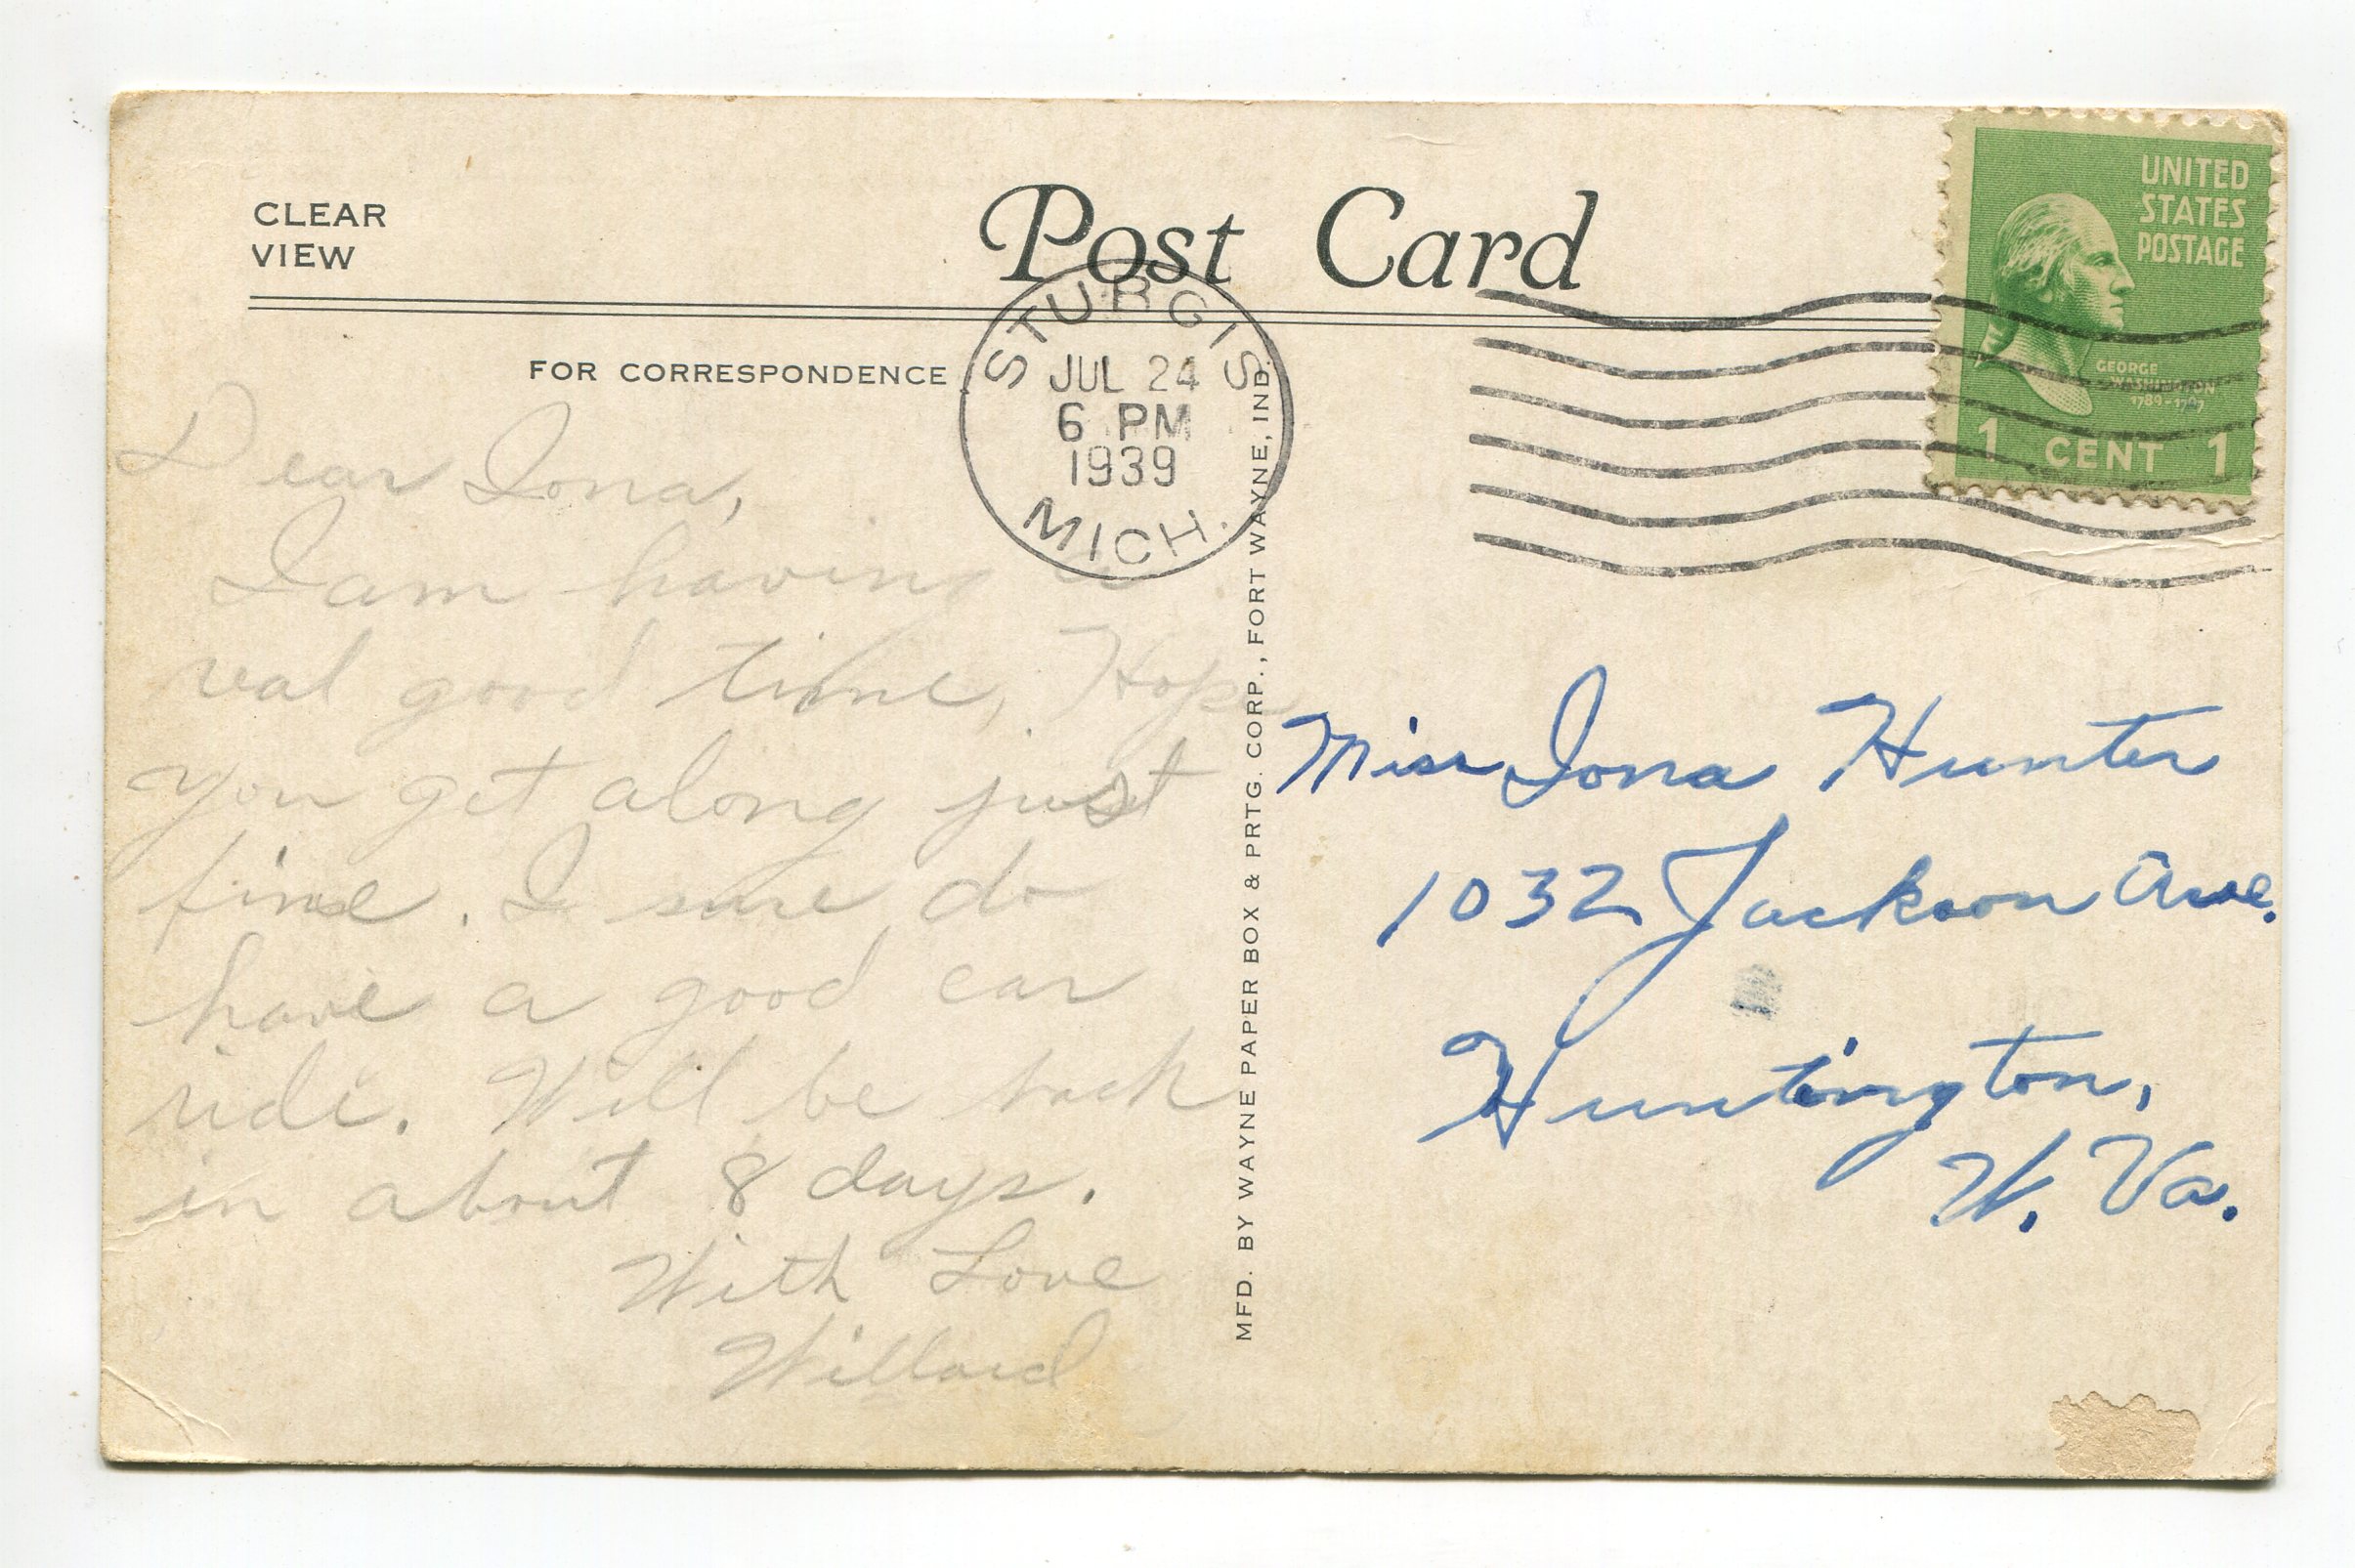 CLEAR
VIEW
Post Card
FOR CORRESPONDENCE
STURGIS
JUL 24
6 PM
1939
MICH.
UNITED
STATES
POSTAGE
GEORGE
WASHINGTON
1789-1797
1 CENT 1
Dear Iona,
I am having a
real good time, Hope
you get along just
fine. I sure do
have a good car
ride. Will be back
in about 8 days.
With Love
Willard
MFD. BY WAYNE PAPER BOX & PRTG. CORP., FORT WAYNE, IND.
Miss Iona Hunter
1032 Jackson Ave.
Huntington,
W. Va.